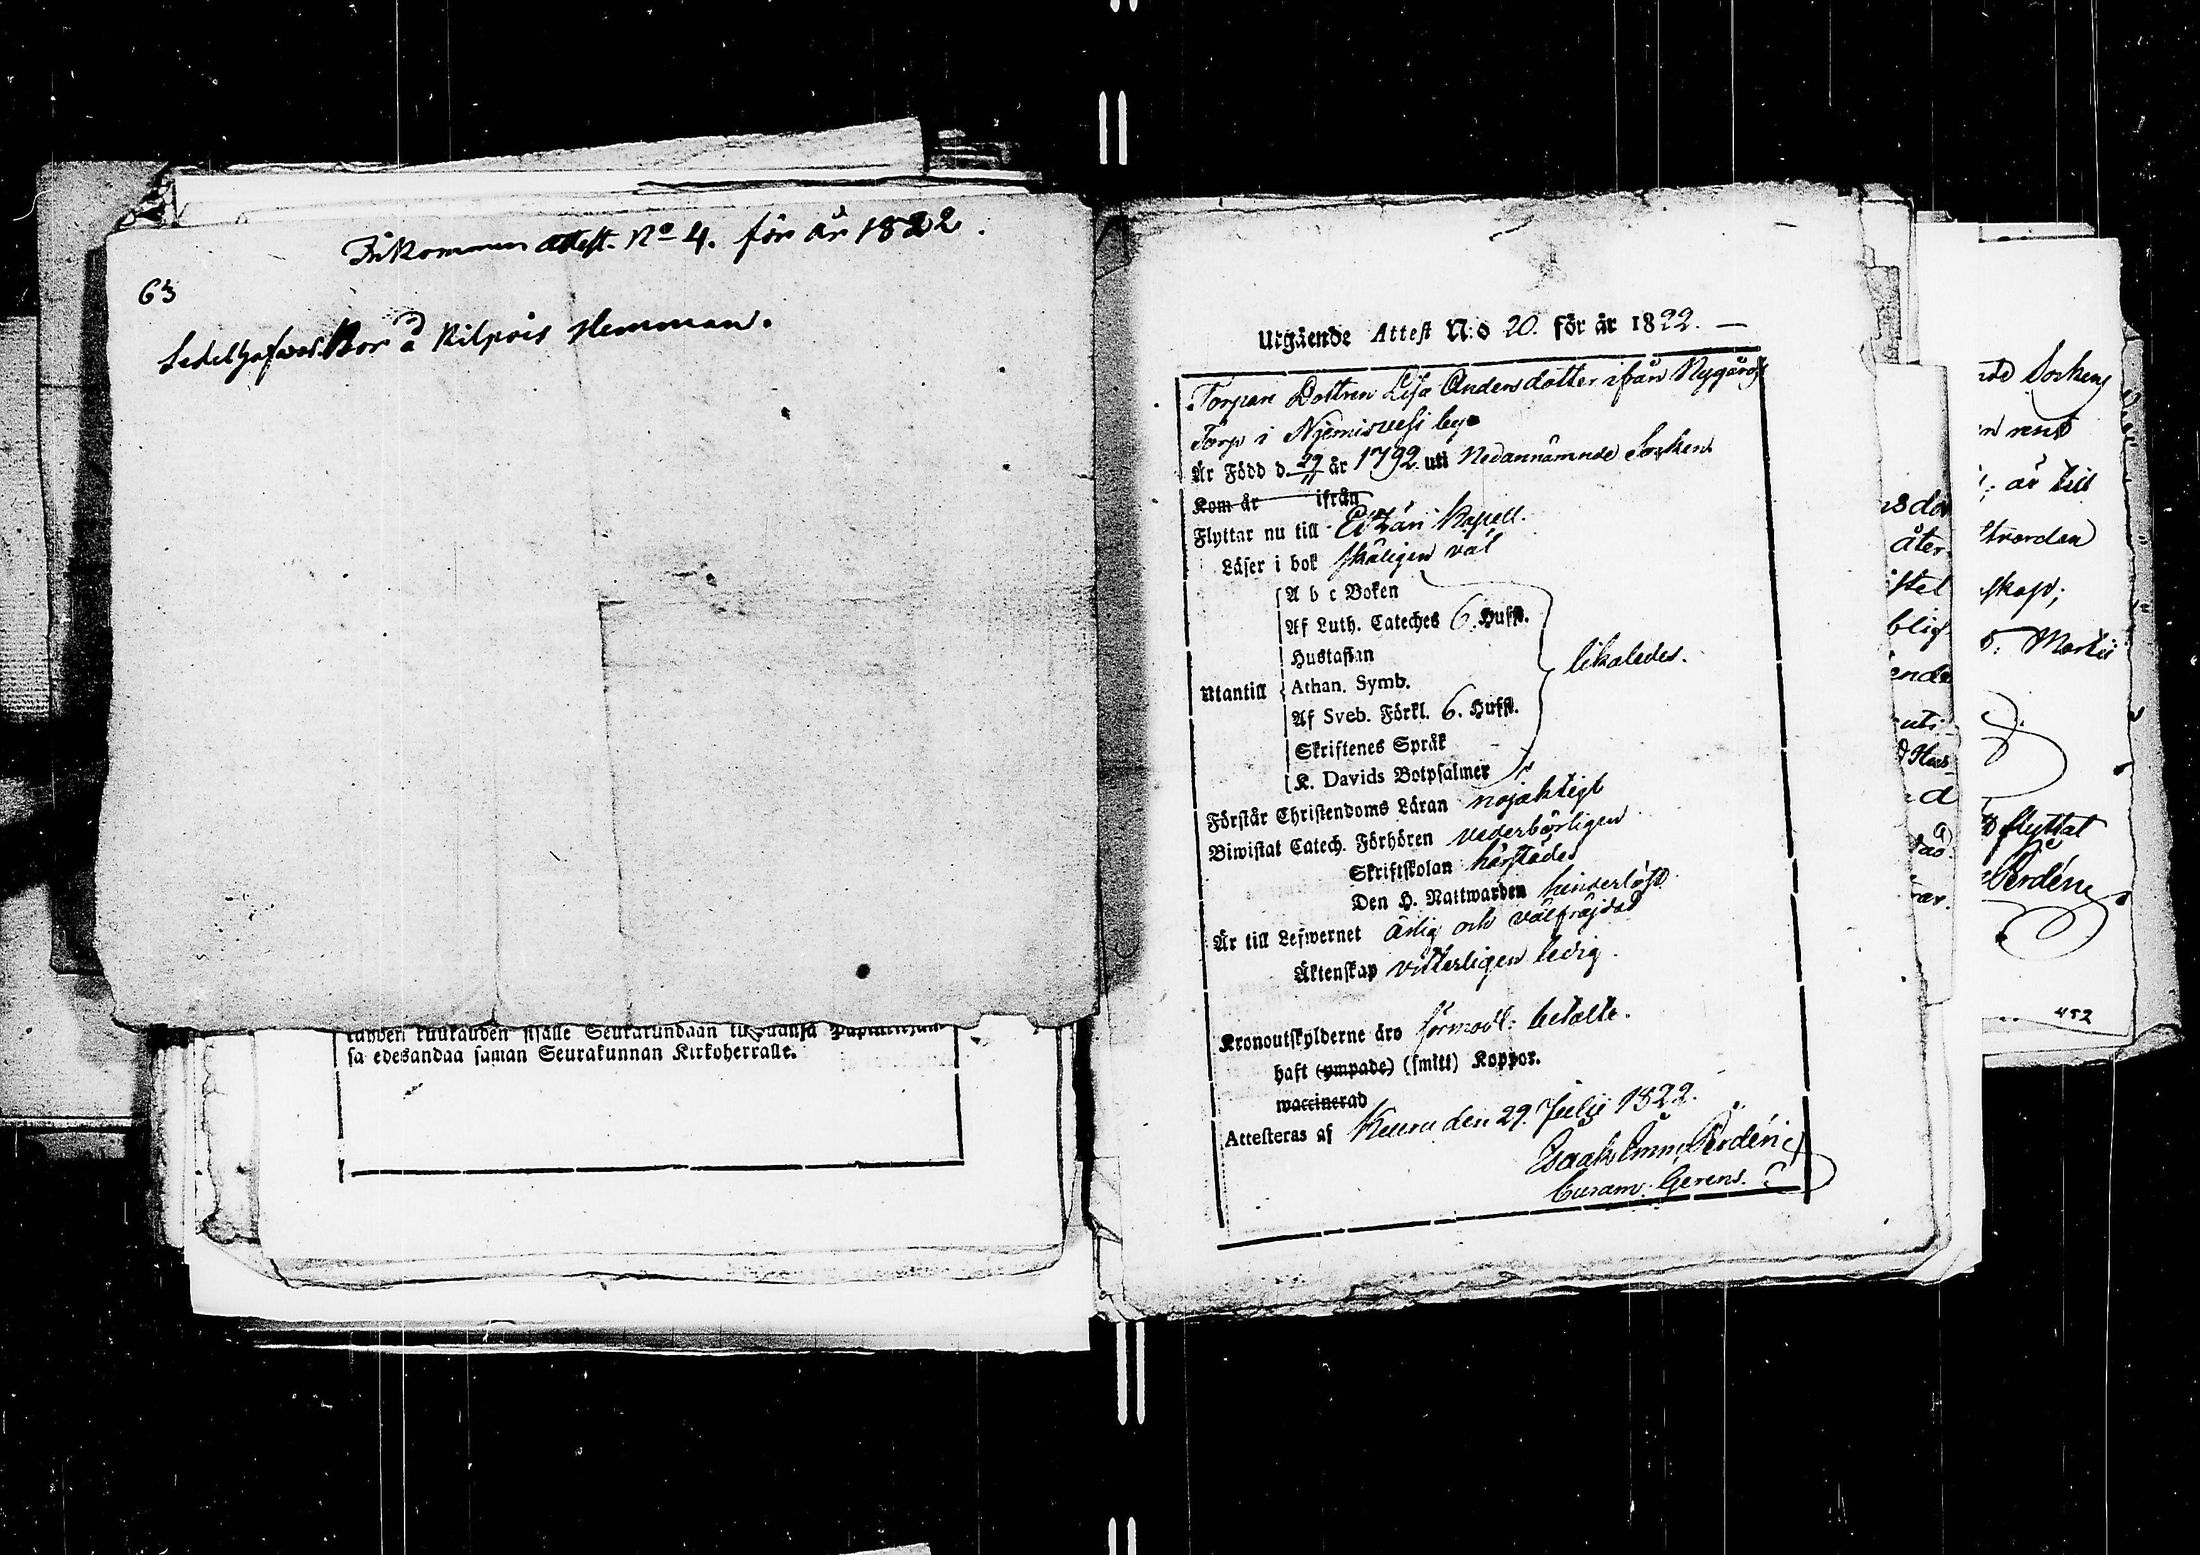 Inkommen attest. No 4. för år 1822.
63
Sedelhafwes. Bor å Kilpois Hemman.
kuukauden sisälle Seurakundaan
sa edesandaa saman Seurakunnan Kirkoherralle.
Utgående Attest N:o 20. för år 1822.
Torpare Dottren Lisa Andersdotter ifrån Nygårds
Torp i Njemisvesi by
Är Född d. 29/11 år 1792 uti Nedannämnde Socken
Kom år ifrån
Flyttar nu till Etzäri Kapell.
Läser i bok skäligen väl
A b c Boken
Af Luth. Cateches 6. Hufst.
Hustaflan
Utantill Athan. Symb. likaledes.
Af Sveb. Förkl. 6. Hufst.
Skriftenes Språk
K. Davids Botpsalmer
Förstår Christendoms Läran nöjaktigt
Biwistat Catech. Förhören vederbörligen
Skriftskolan härstädes
Den H. Nattwarden hinderlöst
Är till Lefwernet ärlig och välfräjdad
Äktenskap vitterligen ledig.
Kronoutskylderne äro förmodl. betalte.
haft (ympade) (smitt) Koppor.
waccinerad
Attesteras af Keuru den 29. Julii 1822.
Isaak Emn. Perdén
Curam. Gerens.
Sockens
år till
skap;
flyttat
Perdén
452